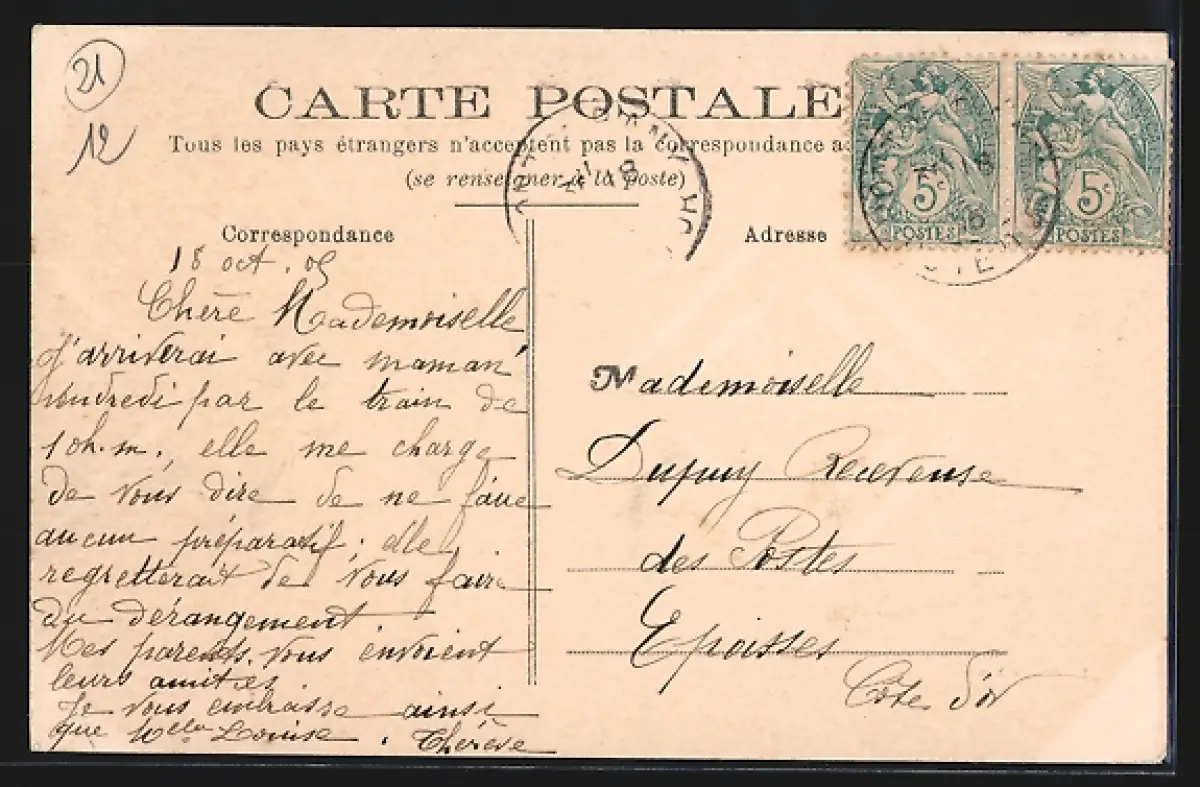 21
12
CARTE POSTALE
Tous les pays étrangers n'acceptent pas la correspondance
(se renseigner à la poste)
Correspondance
Adresse
5c
POSTES
5c
POSTES
18 oct. 05
Chère Mademoiselle
J'arriverai avec maman
vendredi par le train de
10h.m., elle me charge
de vous dire de ne faire
aucun préparatif; elle
regretterait de vous faire
du dérangement.
Mes parents vous envoient
leurs amitiés
Je vous embrasse ainsi
que Melle Louise. Thérèse
Mademoiselle
Dupuy Receveuse
des Postes
Epoisses
Côte d'or